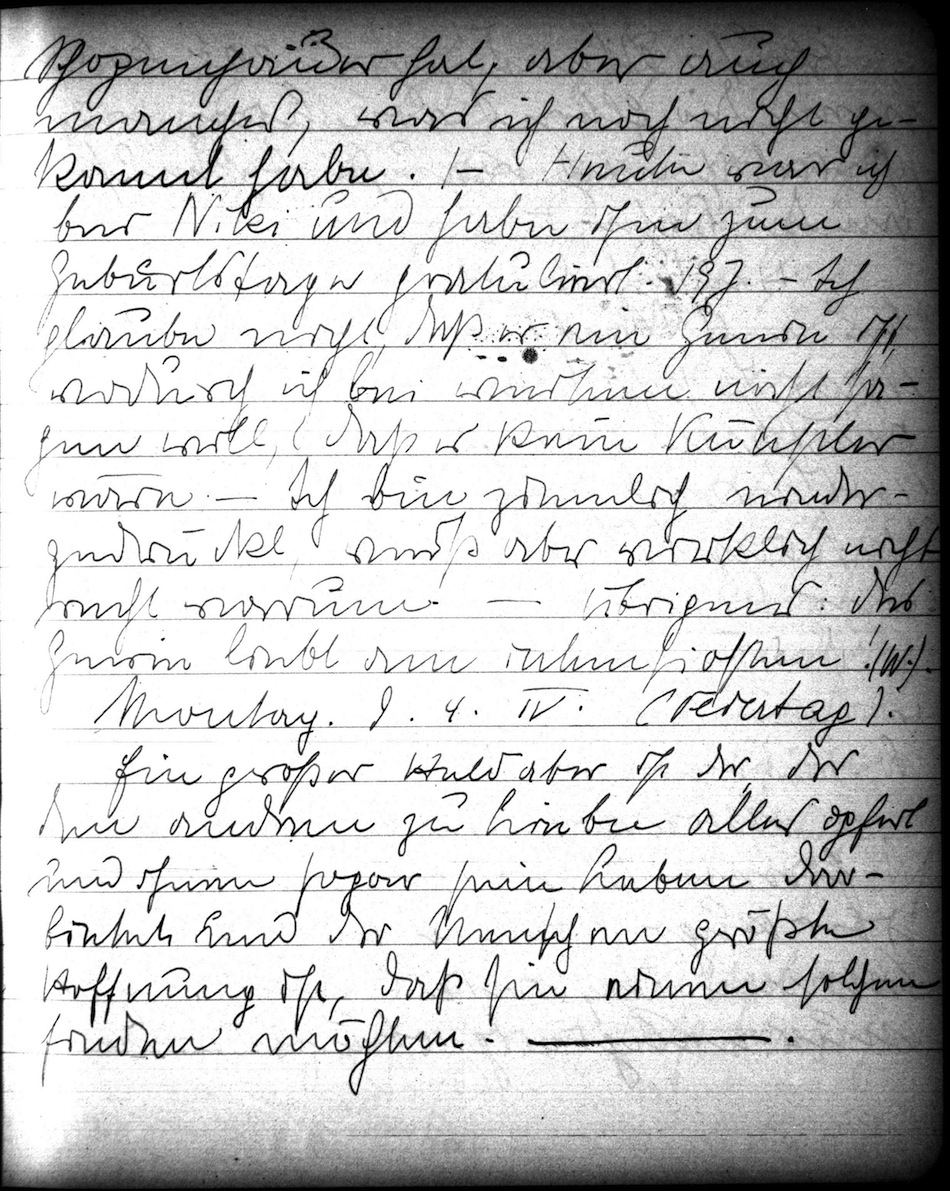 Schopenhauer hat, aber auch
manches, was ich noch nicht ge-
kannt habe. – Heute war ich
bei Niki und habe ihm zum
Geburtstage gratuliert. 19J. – Ich
glaube nicht, daß er ein Genie ist,
wodurch ich bei weitem nicht sa-
gen will, daß er kein Künstler
wäre. – Ich bin ziemlich nieder-
gedrückt, weiß aber wirklich nicht
recht warum. – Übrigens: das
Genie lebt am intensivsten! (W.).
Montag. 9. 4. IV. (Feiertag).
Ein großer Held aber ist der, der
den anderen zu Liebe alles opfert
und ihnen sogar sein Leben dar-
bietet. Und der Menschen größte
Hoffnung ist, daß sie einen solchen
finden möchten. –